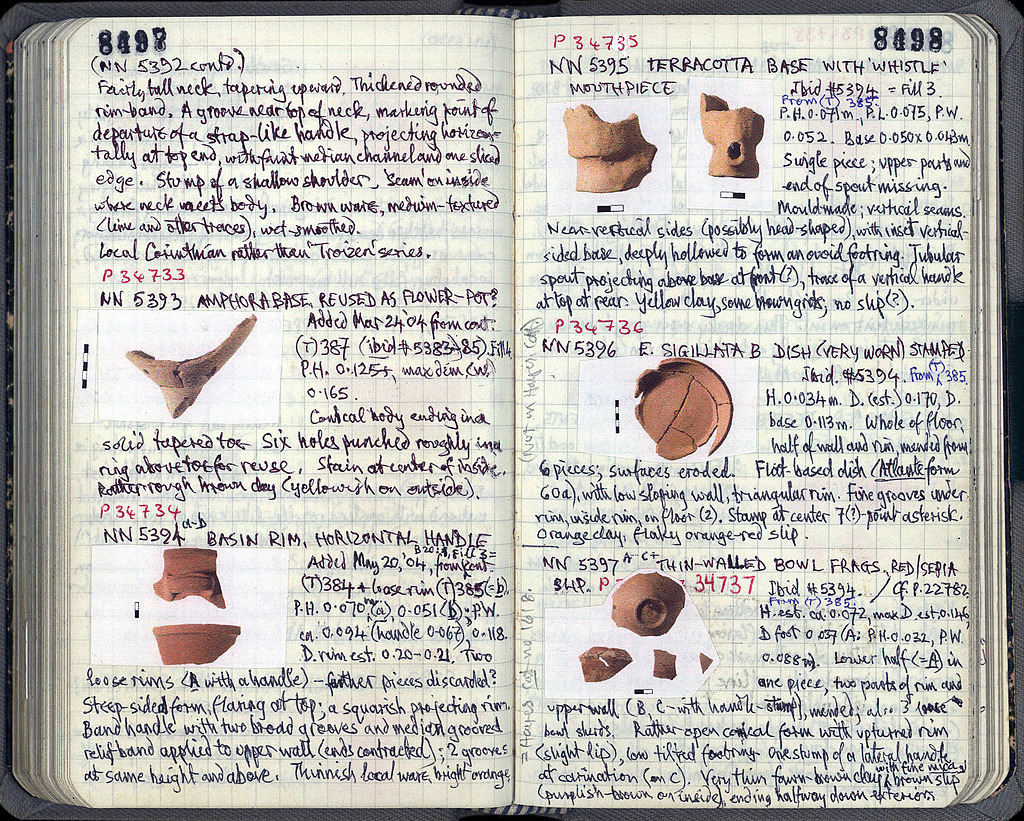 8497
(NN 5392 contd.)
Fairly tall neck, tapering upward. Thickened rounded
rim-band. A groove near top of neck, marking point of
departure of a strap-like handle, projecting horizon-
tally at top end, with faint median channel and one sliced
edge. Stump of a shallow shoulder, 'seam' on inside
where neck meets body. Brown ware, medium-textured
(lime and other traces), wet-smoothed.
Local Corinthian rather than 'Troizen' series.
P 34733
NN 5393 AMPHORA BASE, REUSED AS FLOWER-POT?
Added Mar 24 '04 from cont.
(T) 387 (ibid #5383-85). Fill 4
P.H. 0.125+, max dim. (w.)
0.165.
Conical body ending in a
solid tapered toe. Six holes punched roughly in a
ring above toe for reuse. Stain at center of inside.
Rather rough brown clay (yellowish on outside).
P 34734
NN 5394 a-b BASIN RIM, HORIZONTAL HANDLE
Added May 20, '04, from cont.
(T) 384 + loose rim (T) 385 (=b).
P.H. 0.070 (a), 0.051 (b); P.W.
ca. 0.094 (handle 0.067), 0.118.
D. rim est. 0.20-0.21. Two
loose rims (A with a handle) - further pieces discarded?
Steep-sided form, flaring at top; a squarish projecting rim.
Band handle with two broad grooves and median grooved
relief band applied to upper wall (ends contracted); 2 grooves
at same height and above. Thinnish local ware, bright orange.
8498
P 34735
NN 5395 TERRACOTTA BASE WITH 'WHISTLE'
MOUTHPIECE
Ibid #5394 = Fill 3.
From (T) 385.
P.H. 0.071m, P.L. 0.075, P.W.
0.052. Base 0.050 x 0.043m
Single piece; upper parts and
end of spout missing.
Mouldmade; vertical seams.
Near-vertical sides (possibly head-shaped), with inset vertical-
sided base, deeply hollowed to form an ovoid footring. Tubular
spout projecting above base at front (?), trace of a vertical handle
at top at rear. Yellow clay, some brown grits, no slip (?).
P 34736
NN 5396 E. SIGILLATA B DISH (VERY WORN) STAMPED
Ibid. #5394. From (T) 385.
H. 0.034 m. D. (est.) 0.170, D.
base 0.113m. Whole of floor,
half of wall and rim, mended from
6 pieces; surfaces eroded. Flat-based dish (Atlante form
60a), with low sloping wall, triangular rim. Fine grooves under
rim, inside rim, on floor (2). Stamp at center 7(?)-point asterisk.
Orange clay, flaky orange-red slip.
NN 5397 A-C+ THIN-WALLED BOWL FRAGS, RED/SEPIA
SLIP. P 34737
Ibid #5394. Cf. P. 22782.
From (T) 385.
H. est. ca. 0.072, max D. est. 0.146
D foot 0.037 (A: P.H. 0.032, P.W.
0.088m). Lower half (=A) in
one piece, two parts of rim and
upper wall (B, C - with handle-stump), mended; also 3 loose
bowl sherds. Rather open conical form with upturned rim
(slight lip), low tilted footring. One stump of a lateral handle
at carination (on C). Very thin fawn-brown clay with fine mica, brown slip
(purplish-brown on inside), ending halfway down exterior.